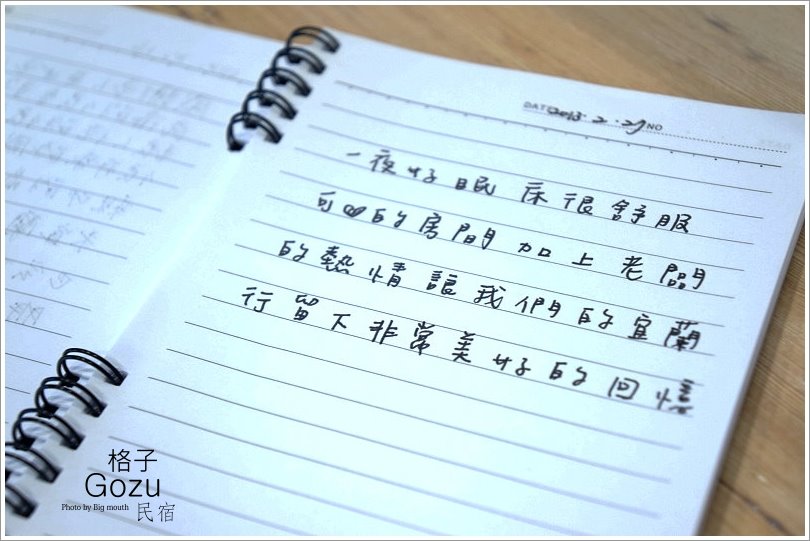 DATE 2013.2.27 NO
一夜好眠 床很舒服
可口的房間加上老闆
的熱情讓我們的宜蘭
行留下非常美好的回憶
格子
Gozu
Photo by Big mouth 民宿